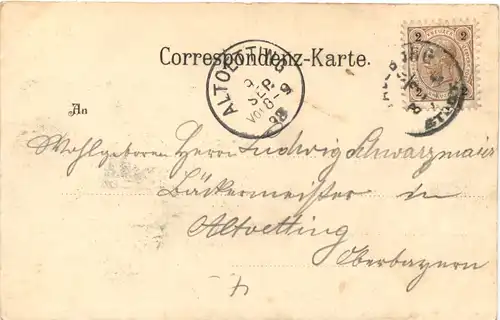 Correspondenz-Karte.
ALTOETTING
9
SEP.
VOR 8-9
98
2 2
An
Wohlgeboren Herrn Ludwig Schwarzmaier
Bäckermeister in
Altoetting
Oberbayern